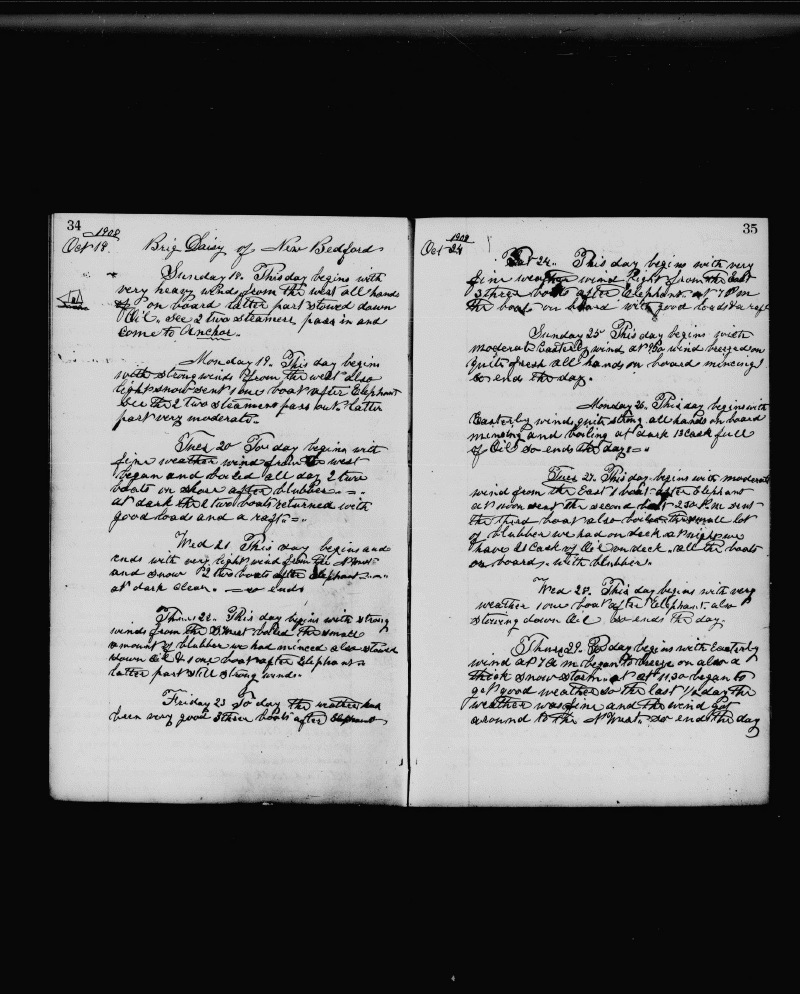 34
1908
Oct 19.
Brig Daisy of New Bedford
Sunday 18. This day begins with
very heavy winds from the west all hands
on board latter part stowed down
Oil. See 2 two steamers pass in and
come to Anchor.
Monday 19. This day begins
with strong winds from the west also
light snow sent 1 one boat after Elephant
See the 2 two steamers pass out. latter
part very moderate.
Tues 20 To day begins with
fine weather wind from the west
began and boiled all day 2 two
boats on shore after blubber
at dark the 2 two boats returned with
good loads and a raft.
Wed 21 This day begins and
ends with very light wind from the N West
and snow 2 two boats after Elephant
at dark clear. so ends
Thurs 22. This day begins with strong
winds from the West boiled the small
amount of blubber we had minced also stowed
down Oil & 1 one boat after Elephant
latter part still strong winds.
Friday 23 To day the weather has
been very good 3 three boats after Elephant
35
1908
Oct 24
Sat 24. This day begins with very
fine weather wind light from the East
3 three boats after Elephant. at 7 P m
the boats on board with good loads & a raft
Sunday 25 This day begins with
moderate Easterly wind at wind breezed on
quite fresh all hands on board mincing
So ends the day.
Monday 26. This day begins with
Easterly winds quite strong all hands on board
mincing and boiling at dark 13 Cask full
of Oil so ends the day
Tues 27. This day begins with moderate
wind from the East 1 boat after Elephant
at noon sent the second boat 2.30 P.m sent
the third boat also boiled the small lot
of blubber we had on deck at night we
have 21 Cask of Oil on deck. all the boats
on board with blubber.
Wed 28. This day begins with very
weather 1 one boat after Elephant also
stowing down Oil So ends the day
Thurs 29. To day begins with Easterly
wind at 7 a m. began to breeze on also a
thick snow storm. at 11.30 began to
get good weather so the last 1/2 day the
weather was fine and the wind got
around to the N West. So ends the day